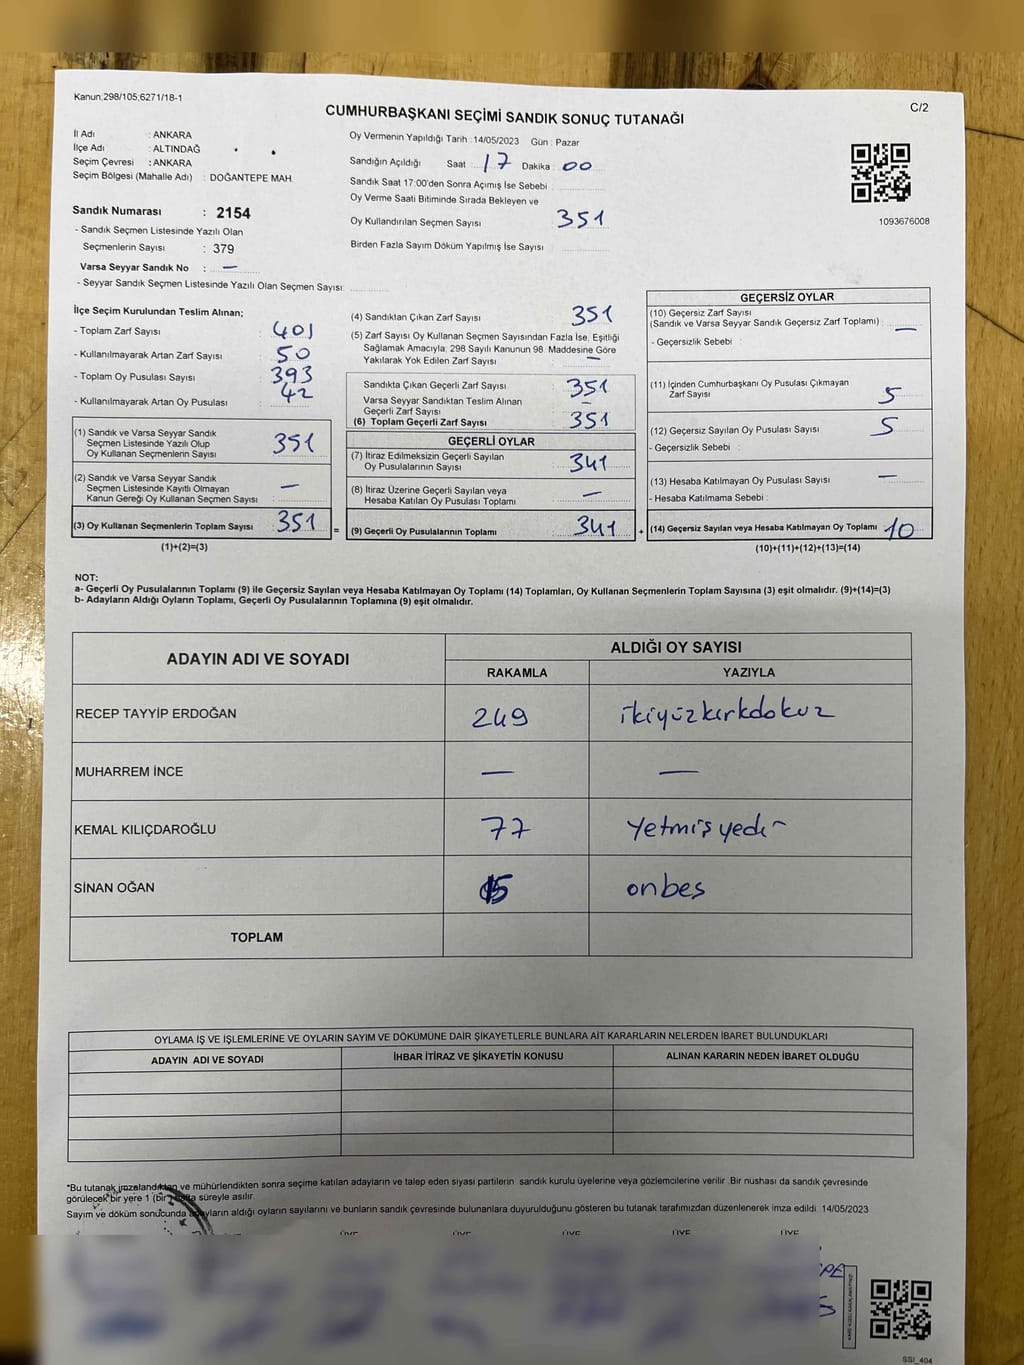 Kanun;298/105,6271/18-1
C/2
CUMHURBAŞKANI SEÇİMİ SANDIK SONUÇ TUTANAĞI
İl Adı : ANKARA
İlçe Adı : ALTINDAĞ
Seçim Çevresi : ANKARA
Seçim Bölgesi (Mahalle Adı) : DOĞANTEPE MAH.
Sandık Numarası : 2154
- Sandık Seçmen Listesinde Yazılı Olan
Seçmenlerin Sayısı : 379
Varsa Seyyar Sandık No : —
- Seyyar Sandık Seçmen Listesinde Yazılı Olan Seçmen Sayısı:
Oy Vermenin Yapıldığı Tarih : 14/05/2023 Gün : Pazar
Sandığın Açıldığı Saat : 17 Dakika : 00
Sandık Saat 17:00'den Sonra Açımış İse Sebebi :
Oy Verme Saati Bitiminde Sırada Bekleyen ve
Oy Kullandırılan Seçmen Sayısı : 351
Birden Fazla Sayım Döküm Yapılmış İse Sayısı :
1093676008
İlçe Seçim Kurulundan Teslim Alınan;
- Toplam Zarf Sayısı : 401
- Kullanılmayarak Artan Zarf Sayısı : 50
- Toplam Oy Pusulası Sayısı : 393
- Kullanılmayarak Artan Oy Pusulası : 42
(1) Sandık ve Varsa Seyyar Sandık
Seçmen Listesinde Yazılı Olup
Oy Kullanan Seçmenlerin Sayısı : 351
(2) Sandık ve Varsa Seyyar Sandık
Seçmen Listesinde Kayıtlı Olmayan
Kanun Gereği Oy Kullanan Seçmen Sayısı : —
(3) Oy Kullanan Seçmenlerin Toplam Sayısı : 351 =
(1)+(2)=(3)
(4) Sandıktan Çıkan Zarf Sayısı : 351
(5) Zarf Sayısı Oy Kullanan Seçmen Sayısından Fazla İse, Eşitliği
Sağlamak Amacıyla, 298 Sayılı Kanunun 98. Maddesine Göre
Yakılarak Yok Edilen Zarf Sayısı : —
Sandıkta Çıkan Geçerli Zarf Sayısı : 351
Varsa Seyyar Sandıktan Teslim Alınan
Geçerli Zarf Sayısı : —
(6) Toplam Geçerli Zarf Sayısı : 351
GEÇERLİ OYLAR
(7) İtiraz Edilmeksizin Geçerli Sayılan
Oy Pusulalarının Sayısı : 341
(8) İtiraz Üzerine Geçerli Sayılan veya
Hesaba Katılan Oy Pusulası Toplamı : —
(9) Geçerli Oy Pusulalarının Toplamı : 341 +
GEÇERSİZ OYLAR
(10) Geçersiz Zarf Sayısı
(Sandık ve Varsa Seyyar Sandık Geçersiz Zarf Toplamı) : —
- Geçersizlik Sebebi :
(11) İçinden Cumhurbaşkanı Oy Pusulası Çıkmayan
Zarf Sayısı : 5
(12) Geçersiz Sayılan Oy Pusulası Sayısı : 5
- Geçersizlik Sebebi :
(13) Hesaba Katılmayan Oy Pusulası Sayısı : —
- Hesaba Katılmama Sebebi :
(14) Geçersiz Sayılan veya Hesaba Katılmayan Oy Toplamı : 10
(10)+(11)+(12)+(13)=(14)
NOT:
a- Geçerli Oy Pusulalarının Toplamı (9) ile Geçersiz Sayılan veya Hesaba Katılmayan Oy Toplamı (14) Toplamları, Oy Kullanan Seçmenlerin Toplam Sayısına (3) eşit olmalıdır. (9)+(14)=(3)
b- Adayların Aldığı Oyların Toplamı, Geçerli Oy Pusulalarının Toplamına (9) eşit olmalıdır.
ADAYIN ADI VE SOYADI
ALDIĞI OY SAYISI
RAKAMLA YAZIYLA
RECEP TAYYİP ERDOĞAN 249 ikiyüzkırkdokuz
MUHARREM İNCE — —
KEMAL KILIÇDAROĞLU 77 Yetmişyedi
SİNAN OĞAN 15 onbes
TOPLAM
OYLAMA İŞ VE İŞLEMLERİNE VE OYLARIN SAYIM VE DÖKÜMÜNE DAİR ŞİKAYETLERLE BUNLARA AİT KARARLARIN NELERDEN İBARET BULUNDUKLARI
ADAYIN ADI VE SOYADI İHBAR İTİRAZ VE ŞİKAYETİN KONUSU ALINAN KARARIN NEDEN İBARET OLDUĞU
*Bu tutanak imzalandıktan ve mühürlendikten sonra seçime katılan adayların ve talep eden siyasi partilerin sandık kurulu üyelerine veya gözlemcilerine verilir. Bir nüshası da sandık çevresinde
görülecek bir yere 1 (bir) hafta süreyle asılır.
Sayım ve döküm sonucunda adayların aldığı oyların sayılarını ve bunların sandık çevresinde bulunanlara duyurulduğunu gösteren bu tutanak tarafımızdan düzenlenerek imza edildi. 14/05/2023
ÜYE ÜYE ÜYE ÜYE ÜYE
SSI_404